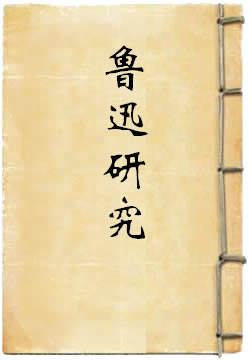 鲁迅研究